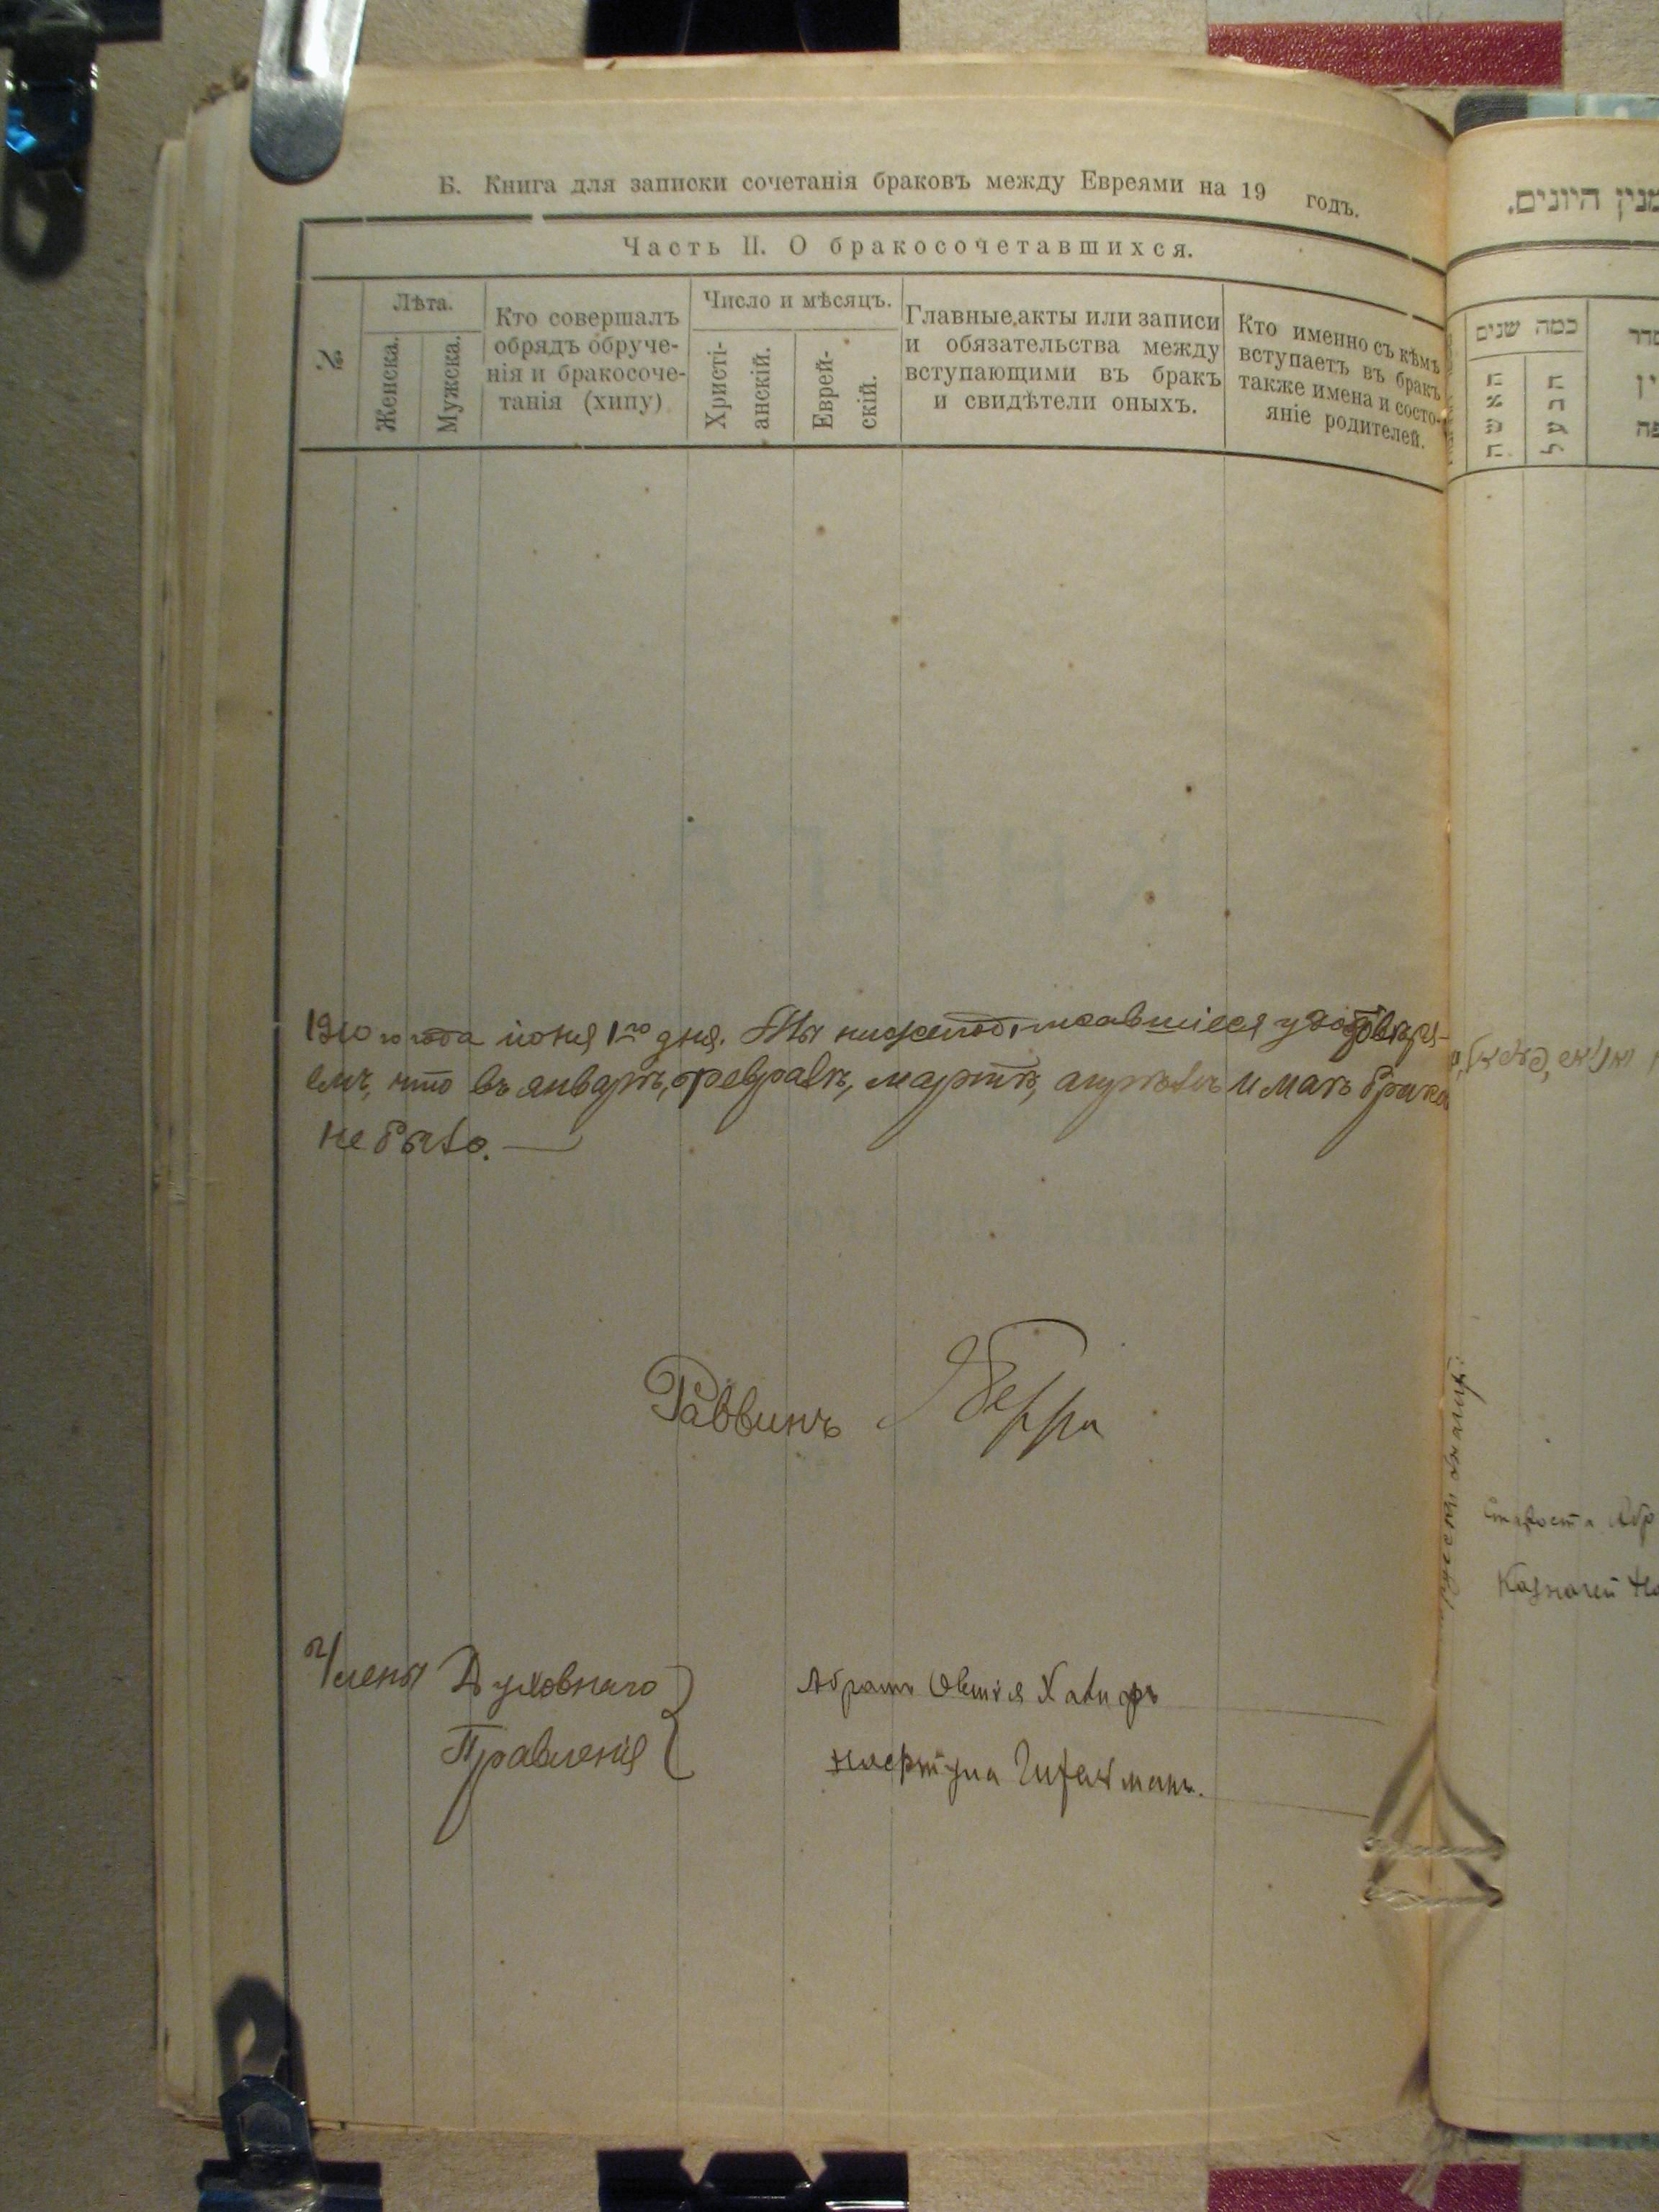 Б. Книга для записки сочетанія браковъ между Евреями на 19 годъ.
Часть II. О бракосочетавшихся.
№.
Лѣта.
Женска.
Мужска.
Кто совершалъ
обрядъ обруче-
нія и бракосоче-
танія (хипу)
Число и мѣсяцъ.
Христі-
анскій.
Еврей-
скій.
Главные акты или записи
и обязательства между
вступающими въ бракъ
и свидѣтели оныхъ.
Кто именно съ кѣмъ
вступаетъ въ бракъ
также имена и состо-
яніе родителей.
1910 го года іюня 1го дня. Мы нижеподписавшіеся удостовѣря-
емъ, что въ январѣ, февралѣ, мартѣ, апрѣлѣ и маѣ брака
не было.
Раввинъ
Члены Духовнаго
Правленія
Абрамъ Овшія
מנין היונים.
כמה שנים
האשה
הבעל
Староста Абр
Казначей